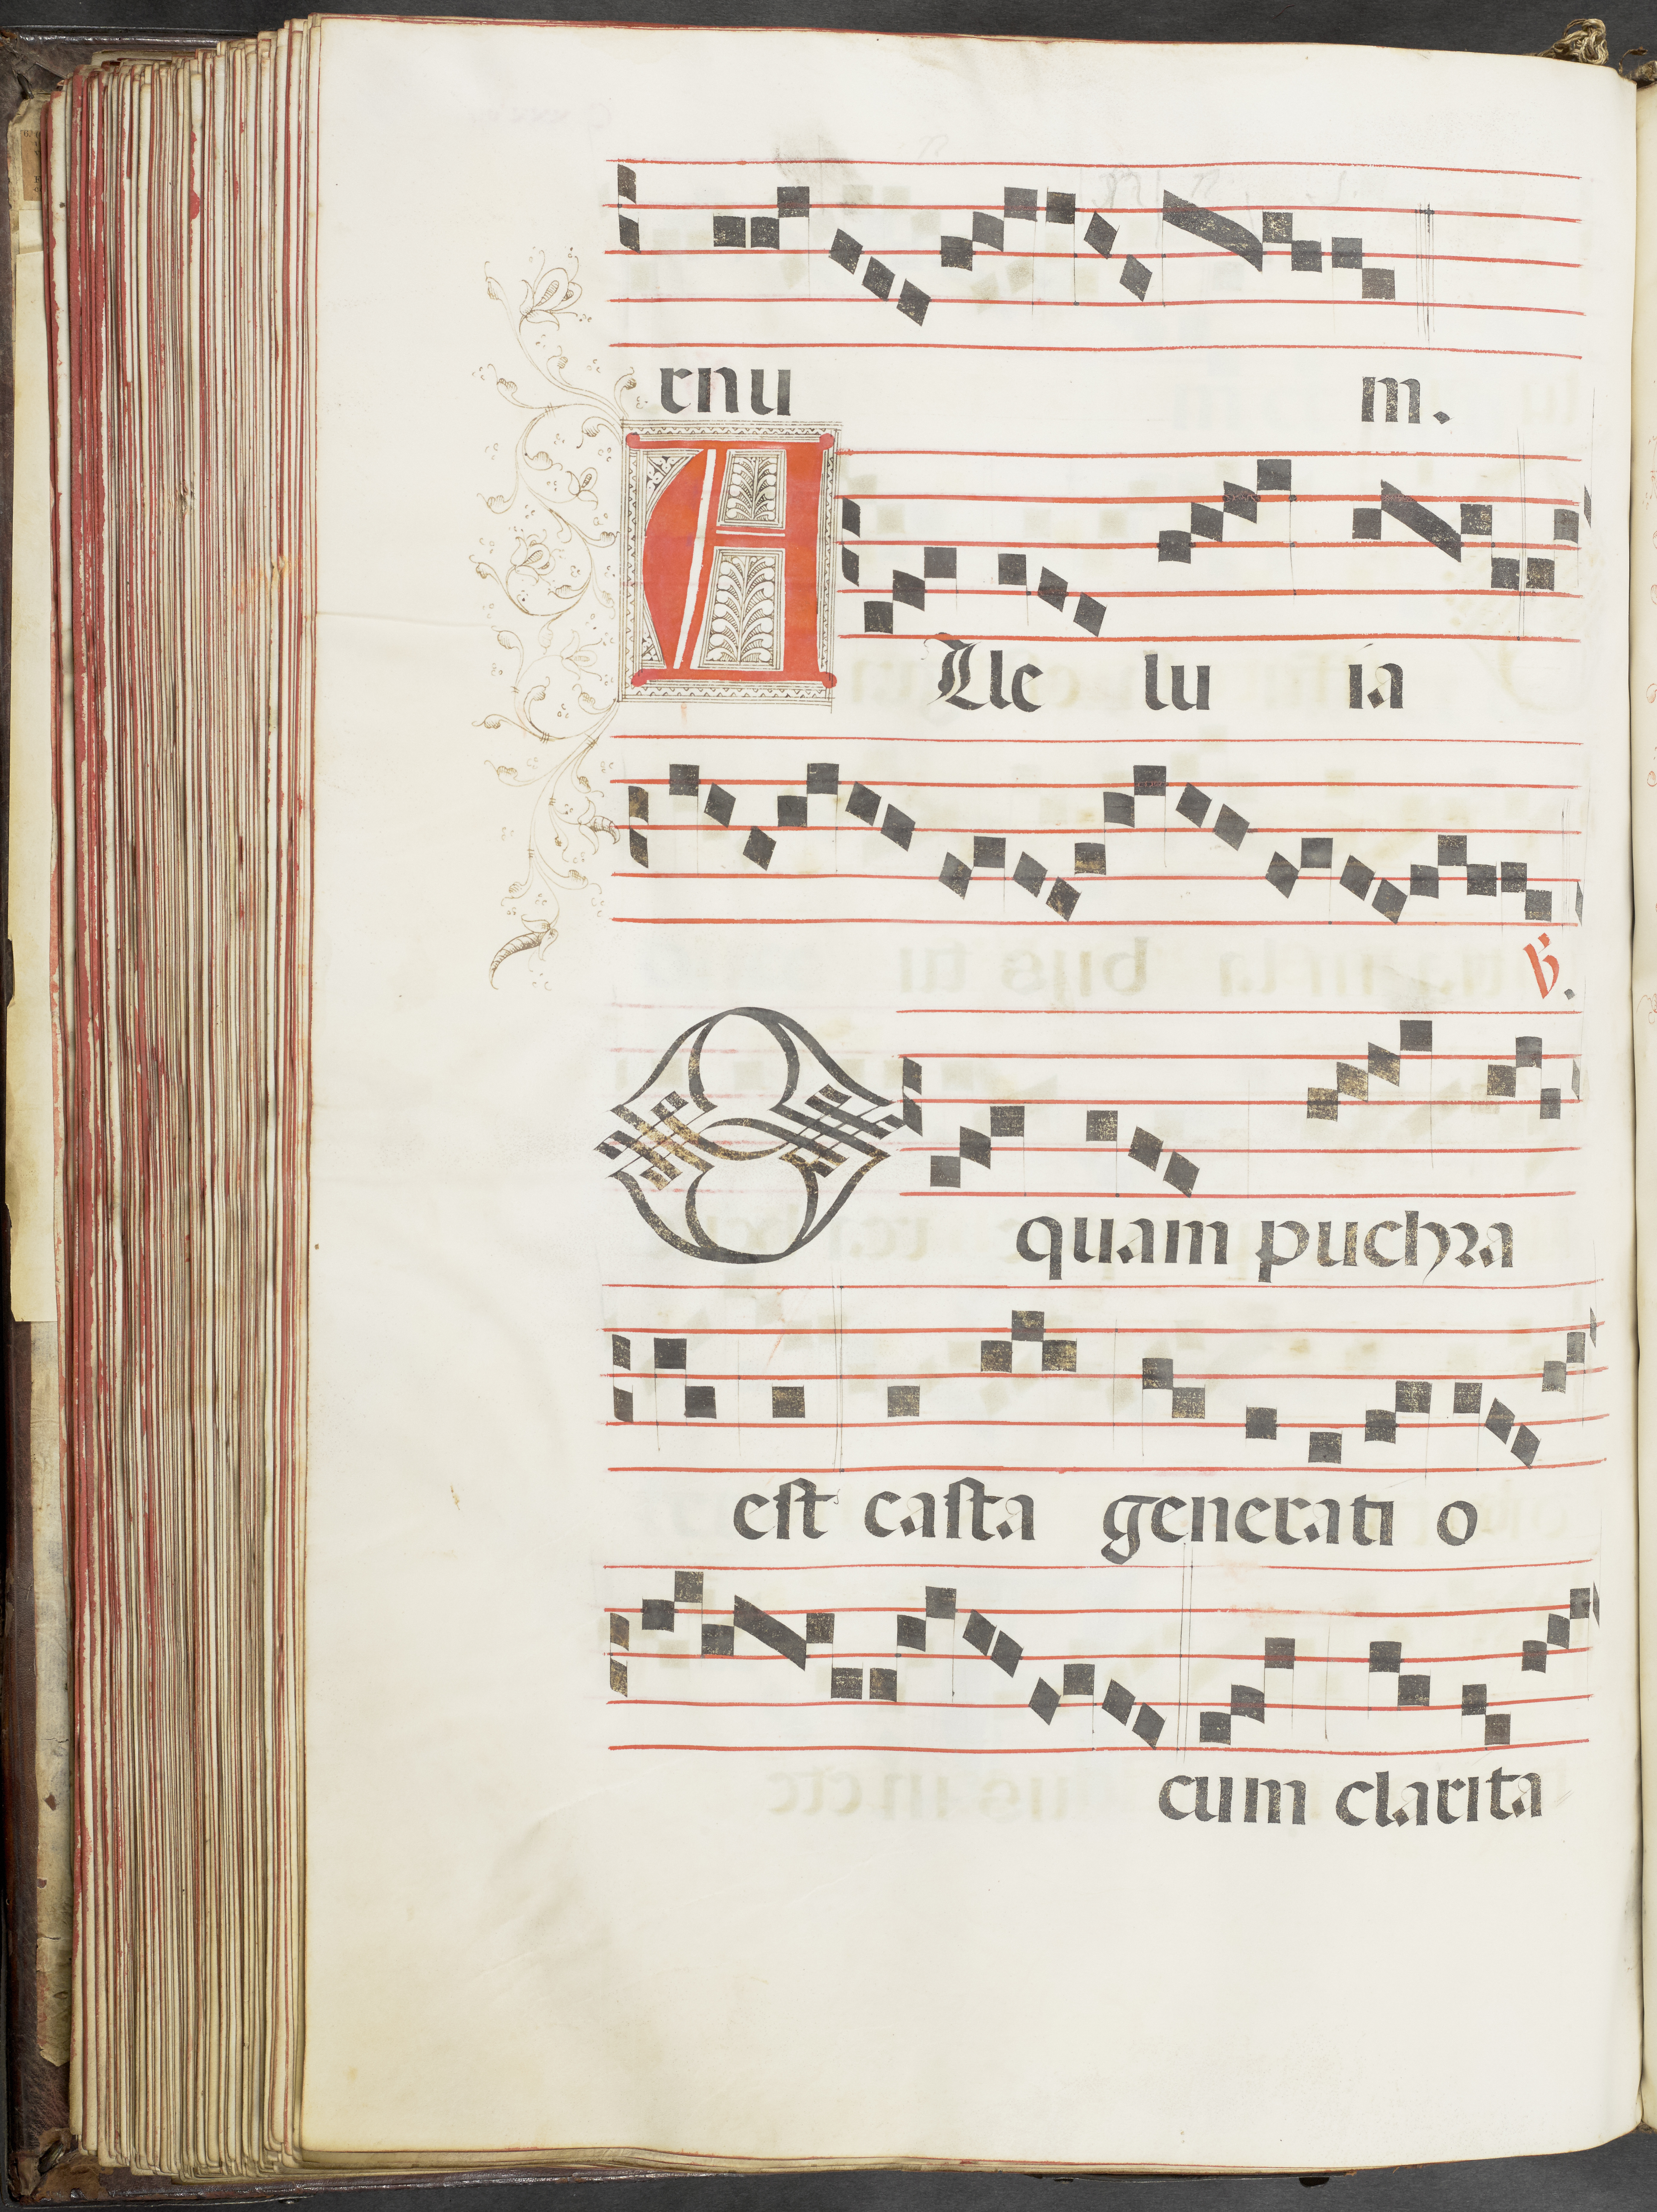 rnu m.
ALle lu ia
℣.
O quam puchra
est casta generati o
cum clarita